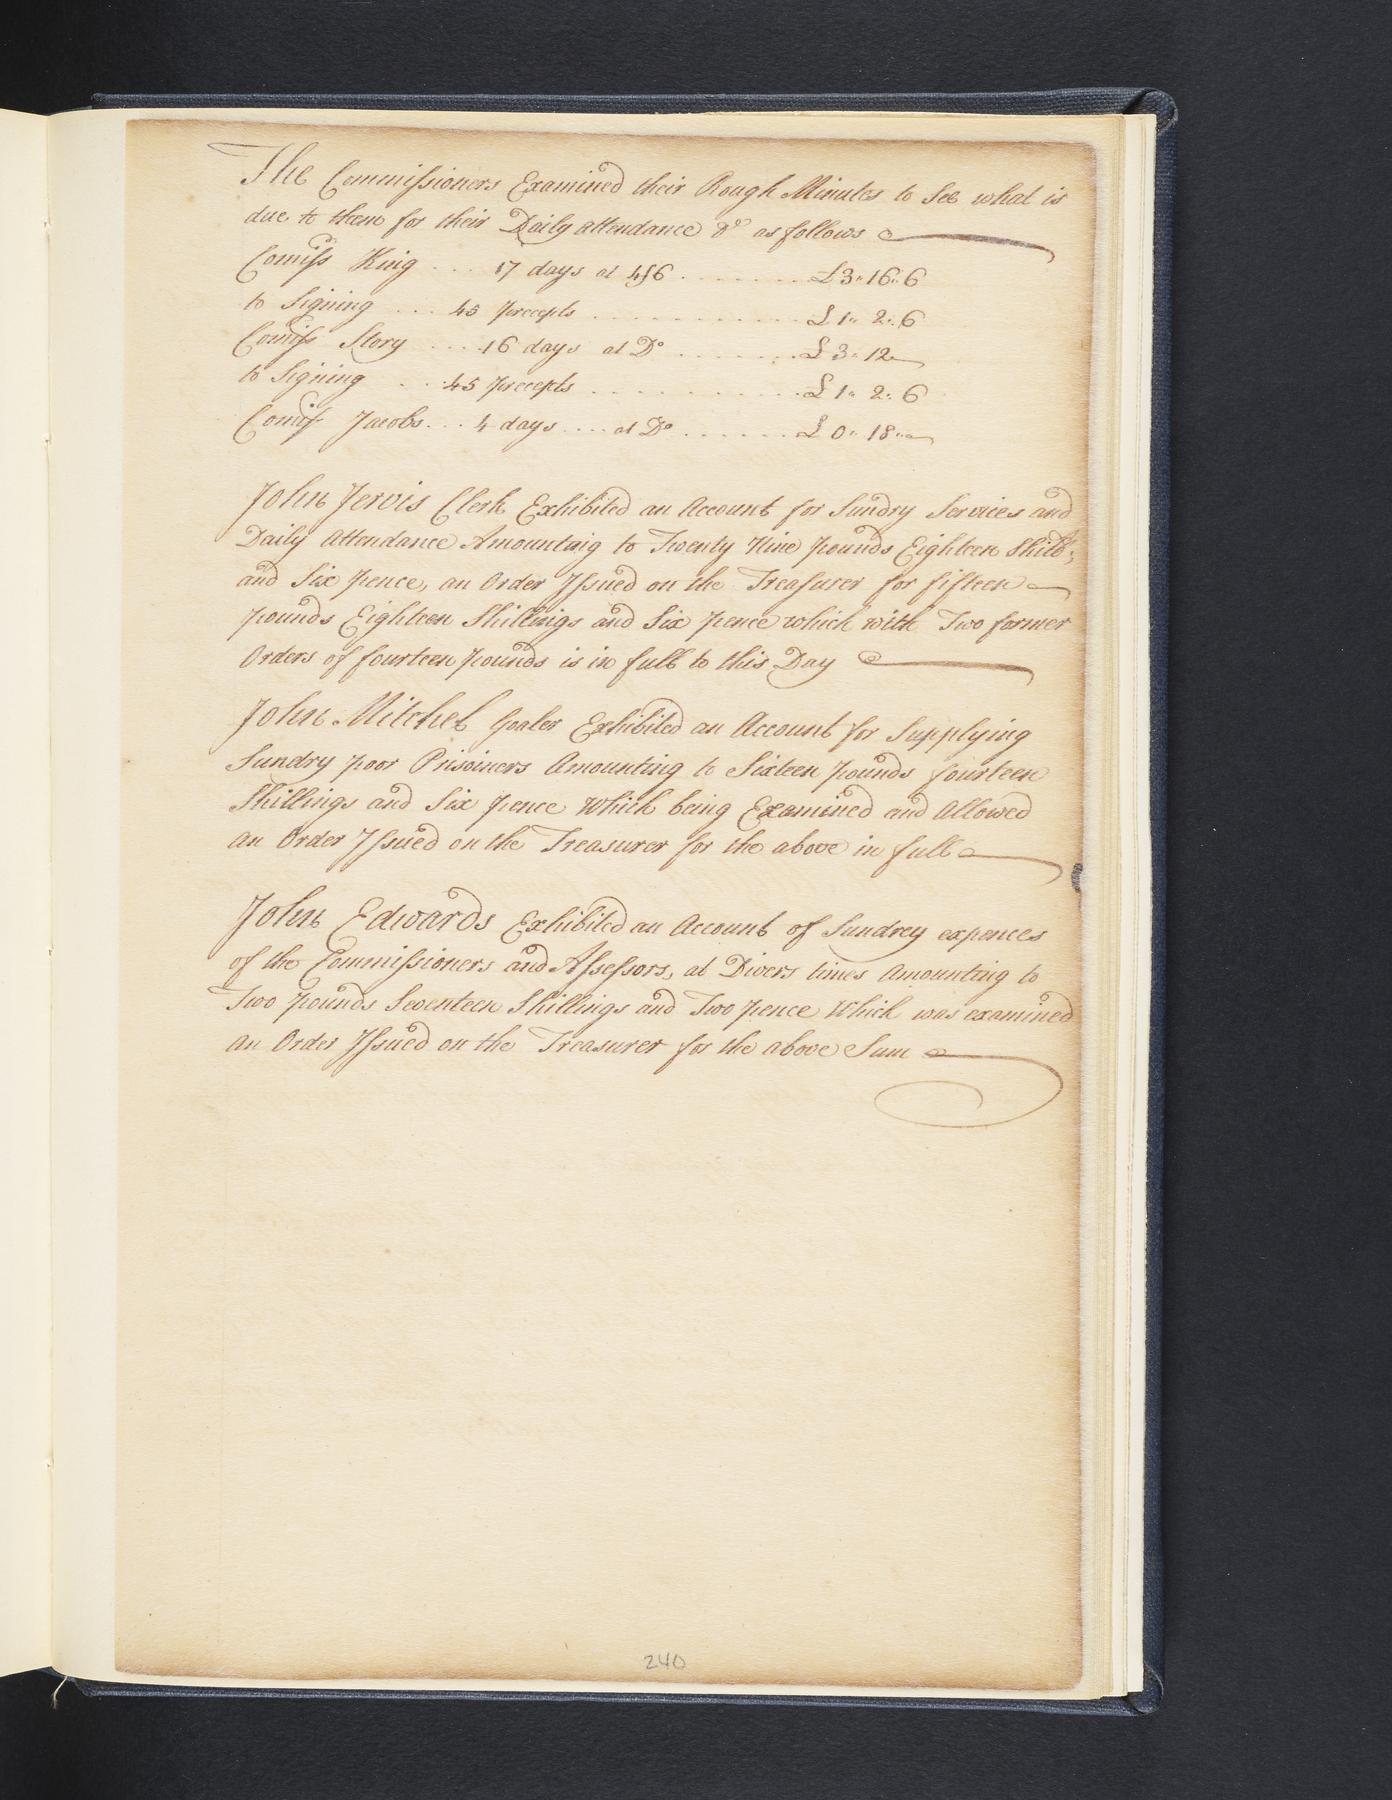 The Commissioners Examined their Rough Minutes to See what is
due to them for their Daily attendance &c as follows
Comiss King .... 17 days at 4/6 ........ £3..16..6
to Signing .... 45 precepts ............ £1..2..6
Comiss Story .... 16 days at Do ........ £3..12
to Signing ... 45 precepts ............ £1..2..6
Comiss Jacobs... 4 days .... at Do ....... £0..18..
John Jervis Clerk Exhibited an Account for Sundry Services and
Daily Attendance Amounting to Twenty Nine pounds Eighteen Shills;
and Six pence, an Order Issued on the Treasurer for fifteen
pounds Eighteen Shillings and Six pence which with Two former
Orders of fourteen pounds is in full to this Day
John Mitchel Goaler Exhibited an Account for Supplying
Sundry poor Prisoiners Amounting to Sixteen pounds fourteen
Shillings and Six pence Which being Examined and Allowed
an Order Issued on the Treasurer for the above in full
John Edwards Exhibited an Account of Sundrey expences
of the Commissioners and Assessors, at Divers times Amounting to
Two pounds Seventeen Shillings and Two pence Which was examined
an Order Issued on the Treasurer for the above Sum
240